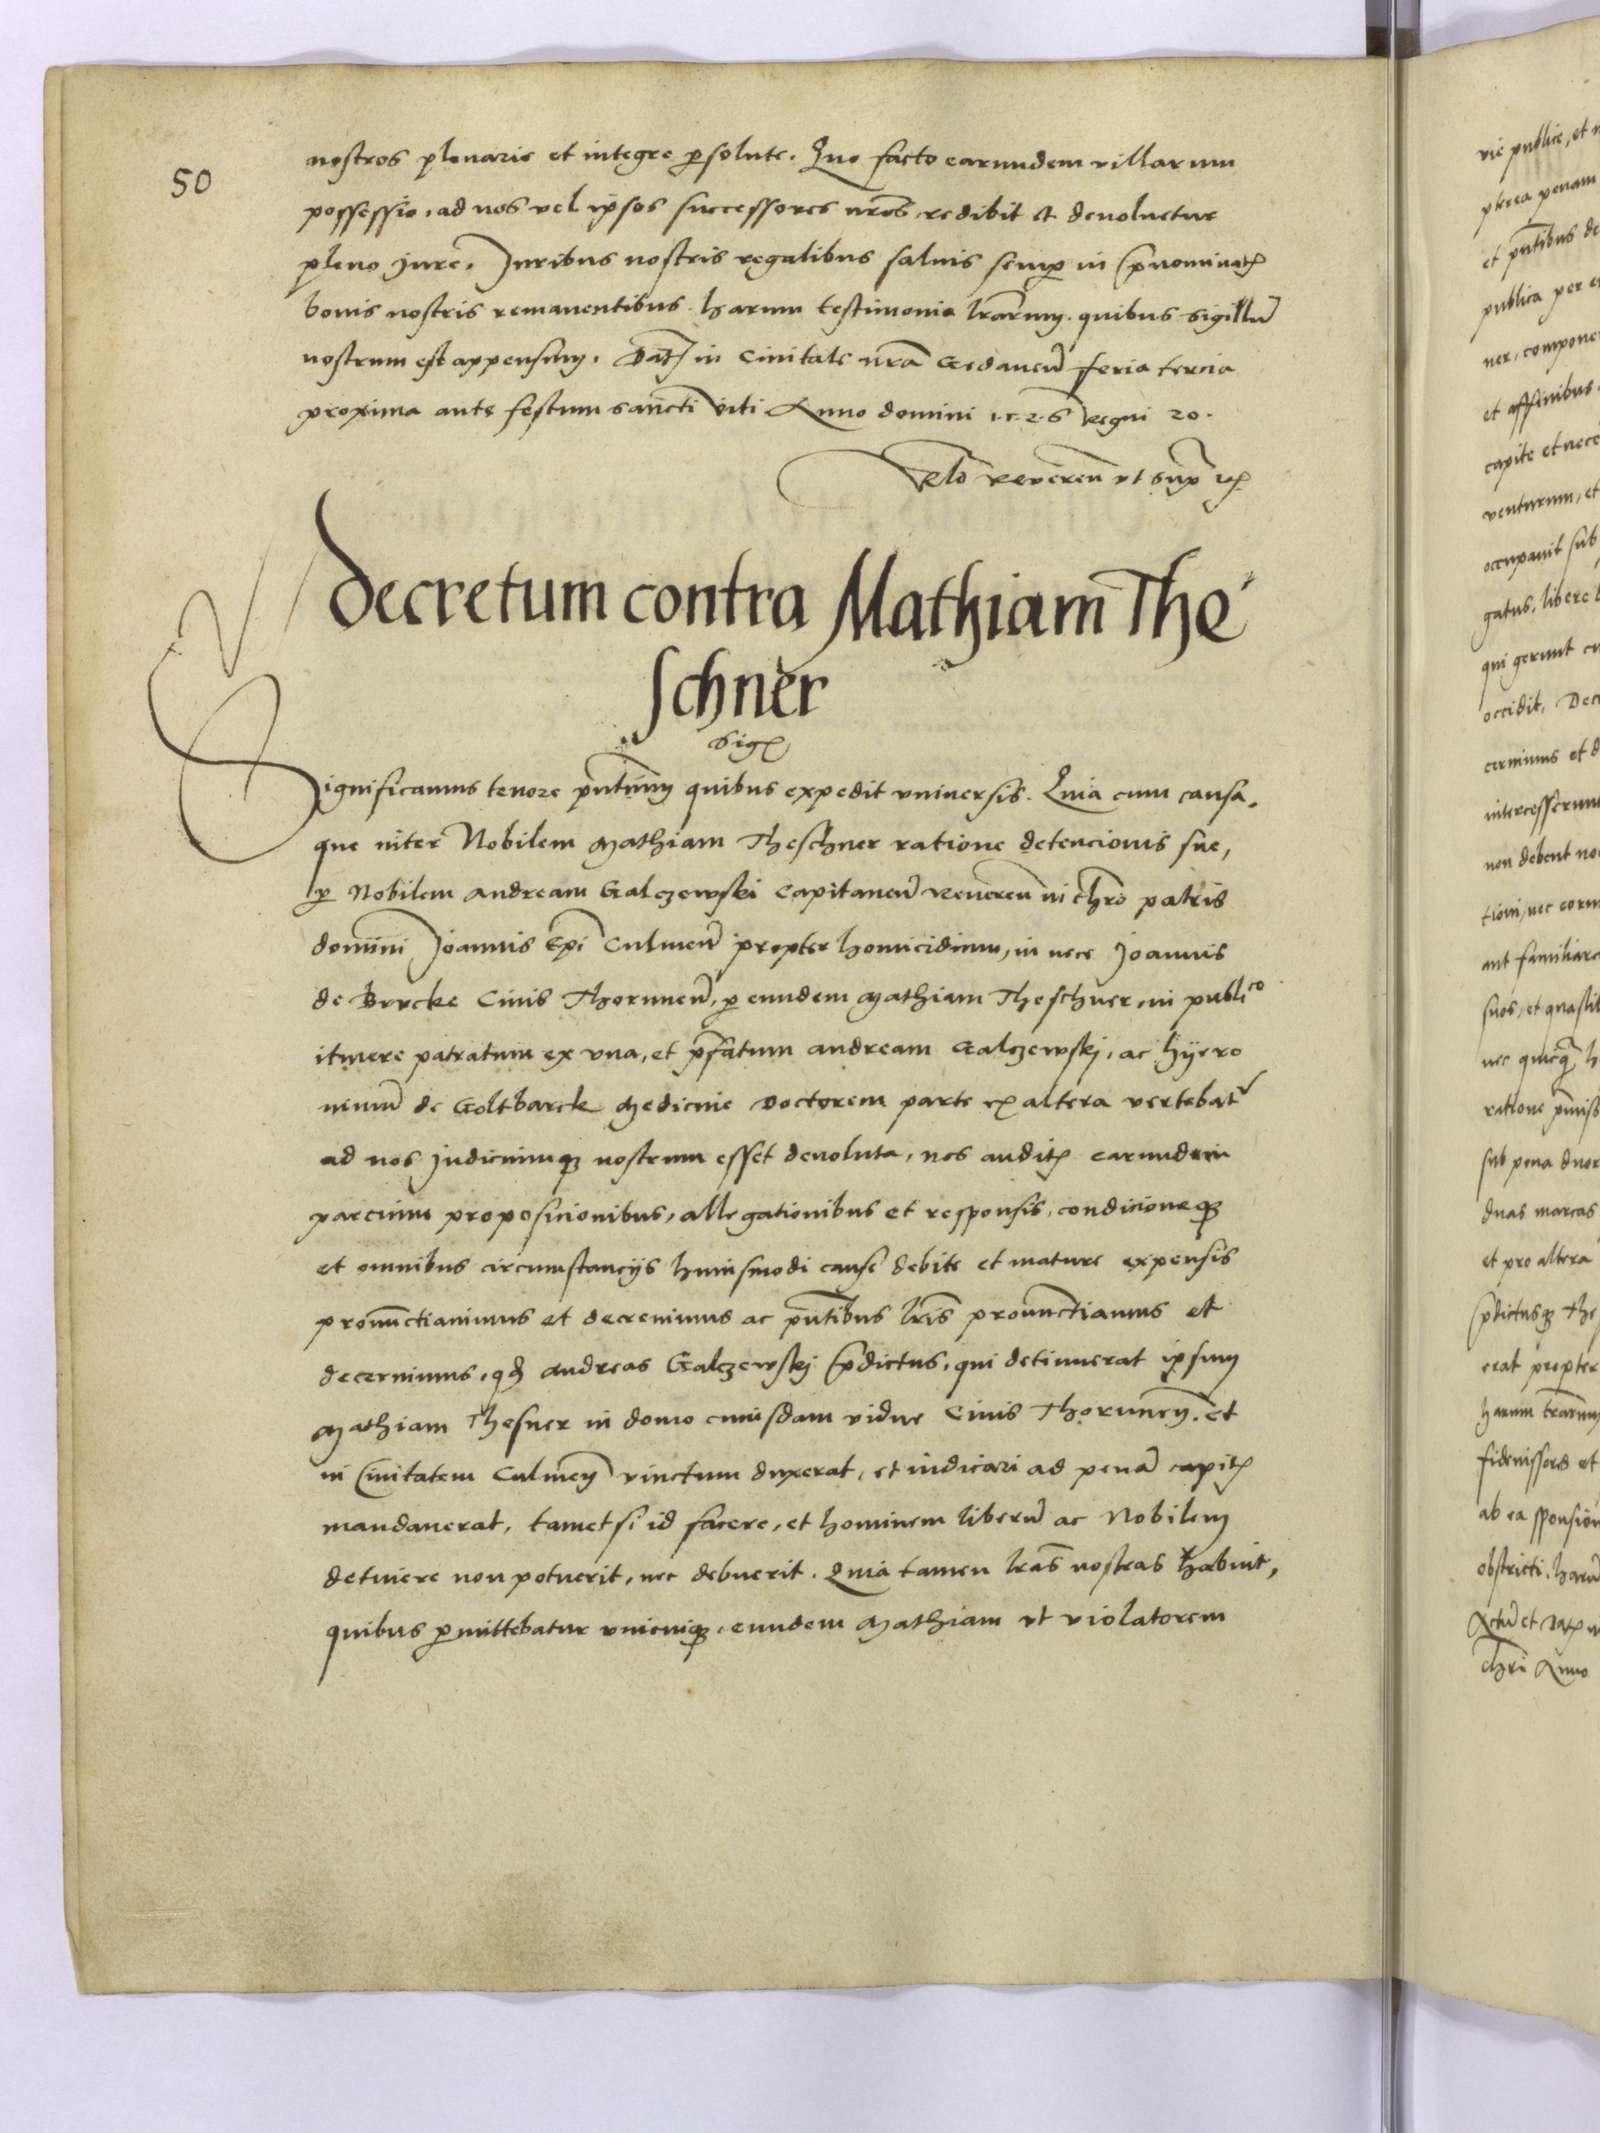 50
nostros plenarie et integre psolute. Quo facto earundem villarum
possessio, ad nos vel ipsos successores nr̄os redibit et devoluetur
pleno Jure, Juribus nostris regalibus saluis semp in p̄nominatꝭ
bonis nostris remanentibus. harum testimonio lr̄arum, quibus sigillū
nostrum est appensum. Datꝭ in Ciuitate nr̄a Gedaneñ feria tercia
proxima ante festum sancti viti Anno domini 1526 Regni 20.
Rlō Revereñ ut supra ꝛꝭ
Decretum contra Mathiam The
schner
Sigꝭ
Significamus tenore pn̄tium quibus expedit vniuersis. Quia cum causa,
que inter Nobilem Mathiam Theschner ratione detencionis sue,
p Nobilem Andream Galczewski Capitaneū Revereñ in chr̄o patris
domini Joannis Ep̄i Culmeñ propter homicidium, in nece Joannis
de Brvcke Ciuis Thoruneñ, p eundem Mathiam Theschner, in publico
itinere patratum ex vna, et p̄fatum Andream Galczewskj, ac Hyero
nimū de Goltbarck Medicine Doctorem parte ex altera vertebatr
ad nos Judiciumqꝫ nostrum esset devoluta, nos auditꝭ earundem
parcium proposicionibus, allegationibus et responsis, condicioneqꝫ
et omnibus circumstancijs huiusmodi cause debite et mature expensis
pronūctiauimus et decreuimus ac pn̄tibus lr̄is pronunctiamus et
decernimus, qđ Andreas Galczewskj p̄dictus, qui detinuerat ipsum
Mathiam Thesner in domo cuiusdam vidue Ciuis Thoruneñ, et
in Ciuitatem Culmeñ vinctum duxerat, et iudicari ad penā capitꝭ
mandauerat, tametsi id facere, et hominem liberū ac Nobilem
detinere non potuerit, nec debuerit. Quia tamen lr̄as nostras habuit,
quibus pmittebatur vnicuiqꝫ, eundem Mathiam vt violatorem
vie publice, et
pterea penam
et pn̄tibus de
publica per
ner, compone
et affinibus
capite et nece
venturum, et
occupauit sub
gatus, libere
qui gerunt
occidit. Dec
cernimus et d
intercesserunt
non debent no
tioni, nec eorum
aut familiare
suos, et
nec quicqꝫ h
ratione
sub pena duor
duas marcas
et pro altera
p̄dictusqꝫ The
erat propter
harum lr̄arum
fideiussores et
ab ea sponsion
obstricti. harū
Actū et Datꝭ
chr̄i Anno